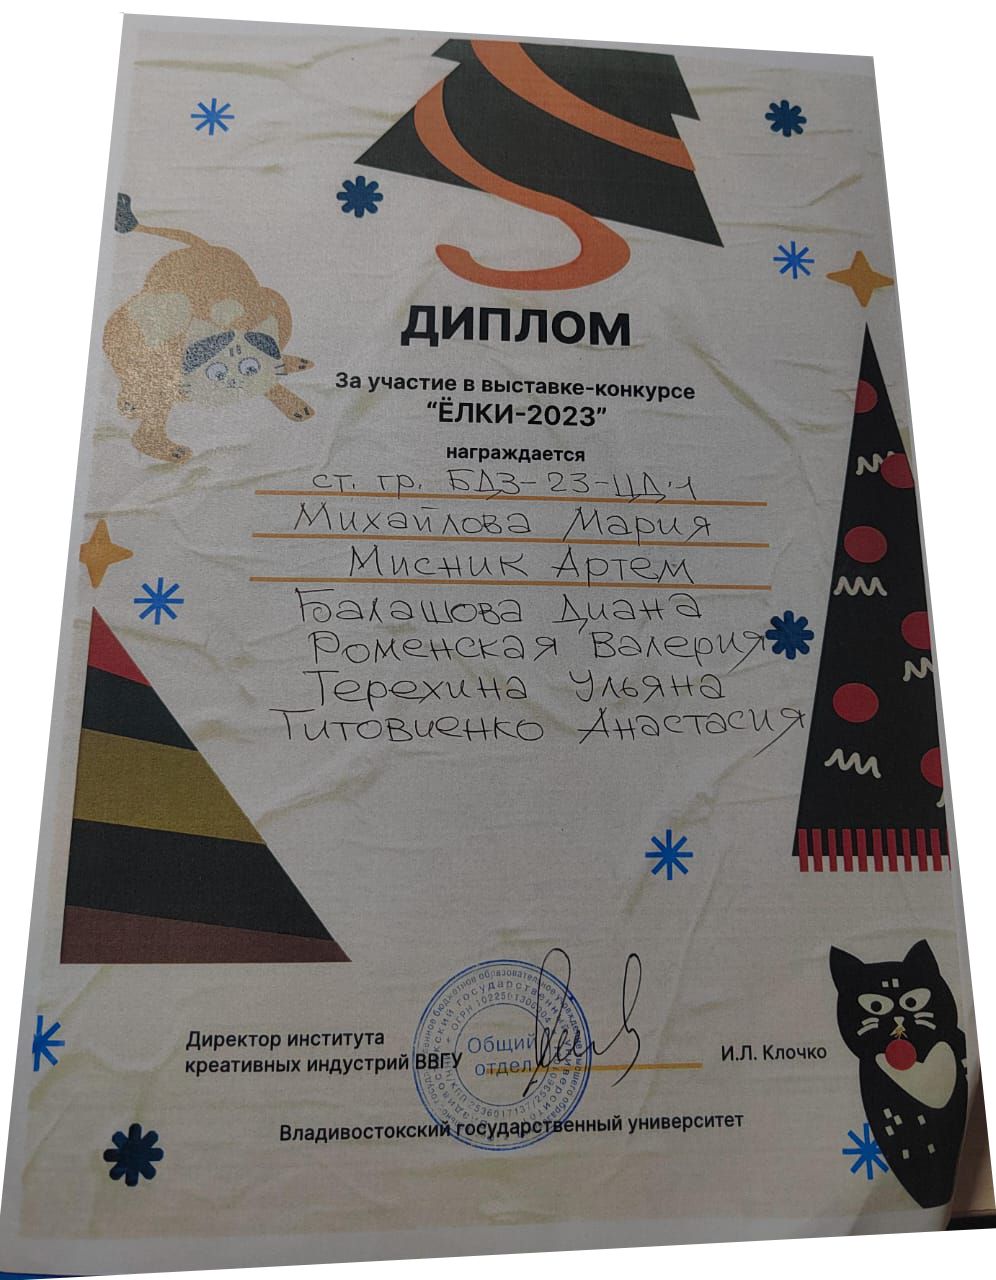 ДИПЛОМ
За участие в выставке-конкурсе
“ЁЛКИ-2023”
награждается
ст. гр. БДЗ-23-ЦД-1
Михайлова Мария
Мисник Артем
Балашова Диана
Роменская Валерия
Терехина Ульяна
Титовиенко Анастасия
Директор института
креативных индустрий ВВГУ
Общий
отдел
И.Л. Клочко
Владивостокский государственный университет